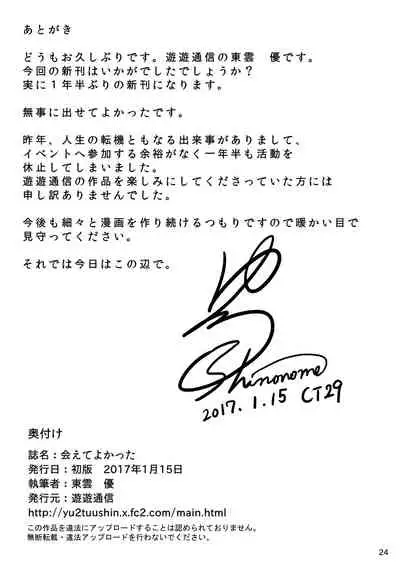 あとがき
どうもお久しぶりです。遊遊通信の東雲　優です。
今回の新刊はいかがでしたでしょうか？
実に１年半ぶりの新刊になります。
無事に出せてよかったです。
昨年、人生の転機ともなる出来事がありまして、
イベントへ参加する余裕がなく一年半も活動を
休止してしまいました。
遊遊通信の作品を楽しみにしてくださっていた方には
申し訳ありませんでした。
今後も細々と漫画を作り続けるつもりですので暖かい目で
見守ってください。
それでは今日はこの辺で。
ゆう
Shinonome
2017. 1.15 CT29
奥付け
誌名：会えてよかった
発行日：初版　2017年1月15日
執筆者：東雲　優
発行元：遊遊通信
http://yu2tuushin.x.fc2.com/main.html
この作品を違法にアップロードすることは認められておりません。
無断転載・違法アップロードを行わないでください。
24